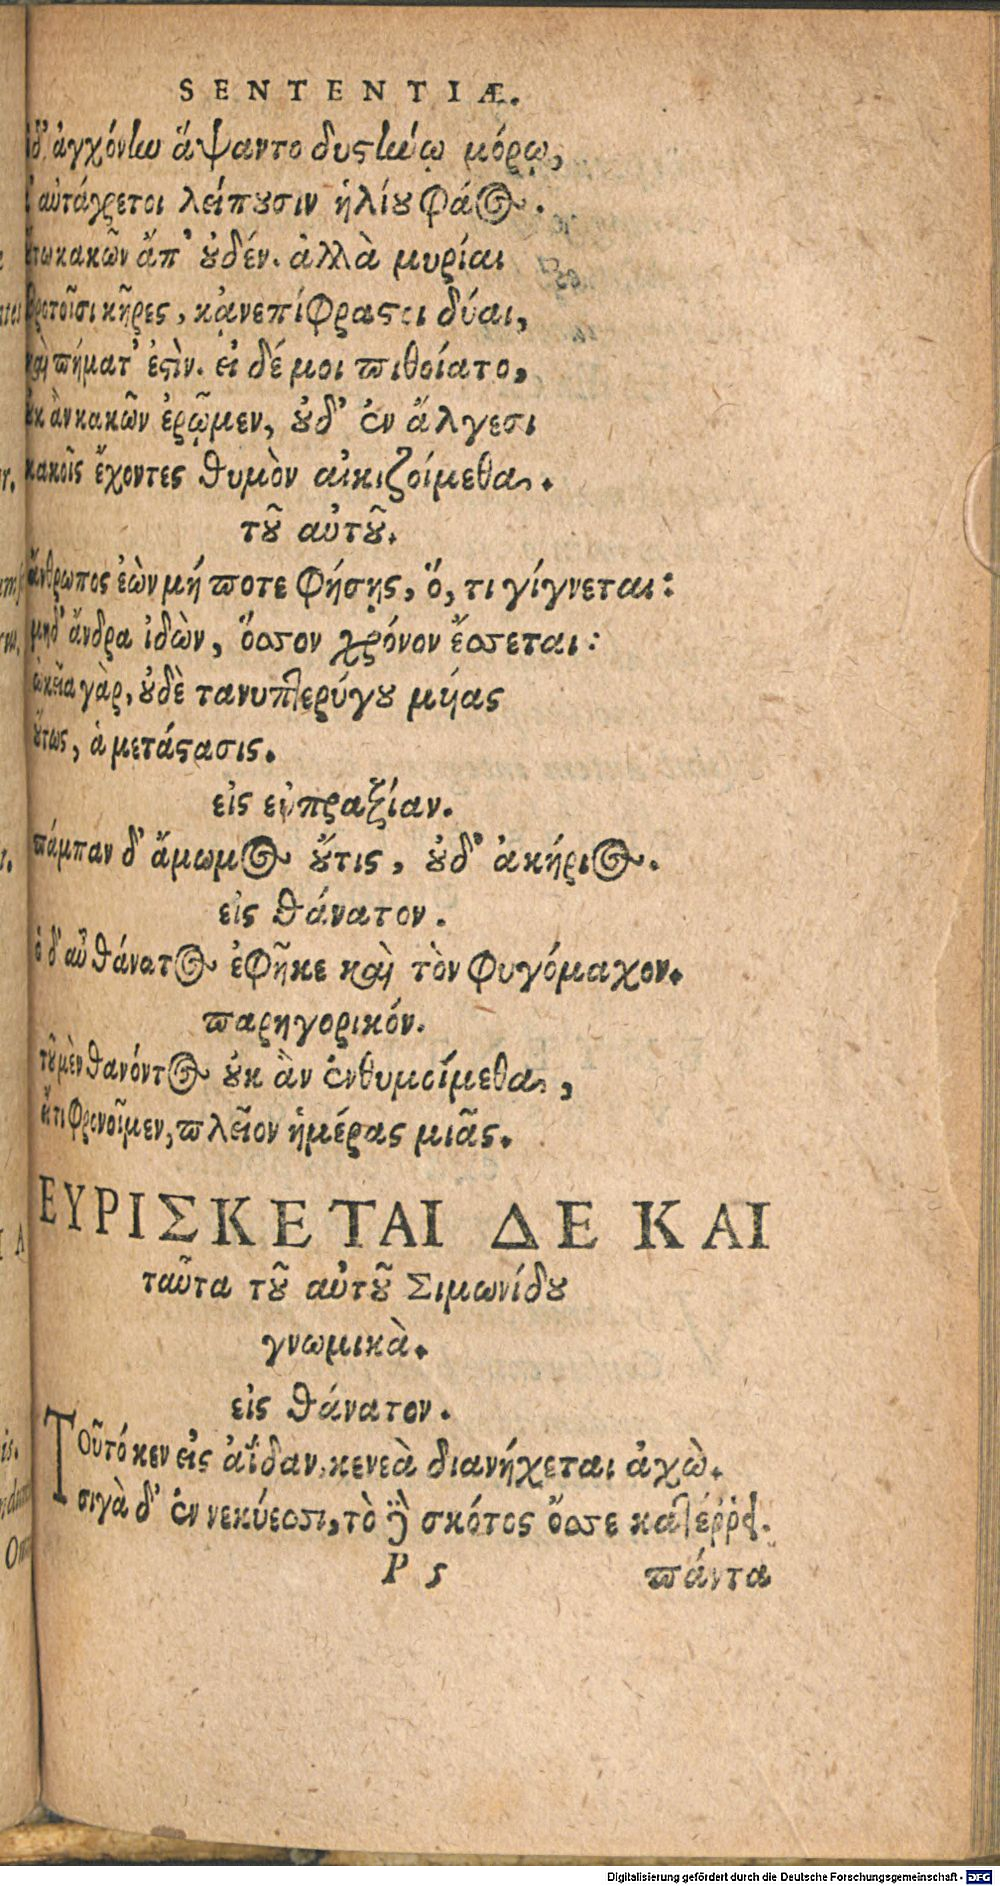 SENTENTIÆ.
δ' ἀγχόνlω ἅψαντο δυςlώῳ μόρῳ,
αὐτάγρετοι λείπουσιν ἡλίου φάος.
κακῶν ἄπ' οὐδέν. ἀλλὰ μυρίαι
βροτοῖσι κῆρες, κἀνεπίφραστοι δύαι,
καὶ πήματ' ἐστὶν. εἰ δέ μοι πιθοίατο,
οὐκ ἂν κακῶν ἐρῷμεν, οὐδ' ἐν ἄλγεσι
κακοῖς ἔχοντες θυμὸν αἰκιζοίμεθα.
τοῦ αὐτοῦ.
ἄνθρωπος ἐὼν μή ποτε φήσης, ὅ, τι γίγνεται:
μηδ' ἄνδρα ἰδὼν, ὅσσον χρόνον ἔσσεται:
ὠκεῖα γὰρ, οὐδὲ τανυπτερύγου μύας
οὕτως, ἁ μετάστασις.
εἰς εὐπραξίαν.
πάμπαν δ' ἄμωμος οὔτις, οὐδ' ἀκήριος.
εἰς θάνατον.
ὁ δ' αὖ θάνατος ἐφῆκε καὶ τὸν φυγόμαχον.
παρηγορικόν.
τοῦ μὲν θανόντος οὐκ ἂν ἐνθυμοίμεθα,
εἴ τι φρονοῖμεν, πλεῖον ἡμέρας μιᾶς.
ΕΥΡΙΣΚΕΤΑΙ ΔΕ ΚΑΙ
ταῦτα τοῦ αὐτοῦ Σιμωνίδου
γνωμικὰ.
εἰς θάνατον.
Τοῦτό κεν εἰς ἀΐδαν, κενεὰ διανήχεται ἀχὼ.
σιγὰ δ' ἐν νεκύεσσι, τὸ δὲ σκότος ὄσσε κατέρρει.
P 5 πάντα
Digitalisierung gefördert durch die Deutsche Forschungsgemeinschaft - DFG